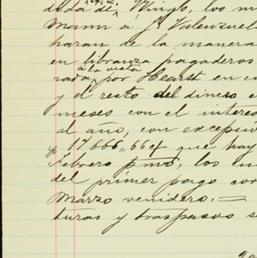 duda de Wingo, los m
Mann a J. Valenzuel
haran de la manera
en libranza pagaderos
a la vista
rada, por Hearst en co
y el resto del dinero e
meses con el interes
al año, con excepcio
17666,,66¢ que hay
Febrero pmo, los
del primer pago con
Marzo venidero.—
turas y traspasos s